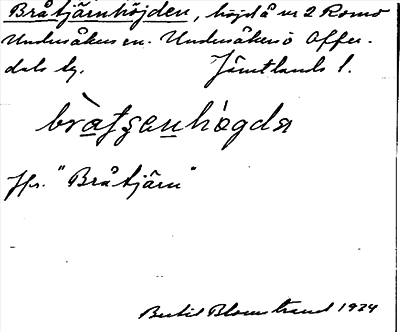 Bråtjärnhöjden, höjd å nr 2 Romo
Undersåkers sn. Undersåkers o Offer-
dals tg. Jämtlands l.
bràtʂenhøgda
Jfr. "Bråtjärn"
Bertil Blomstrand 1934